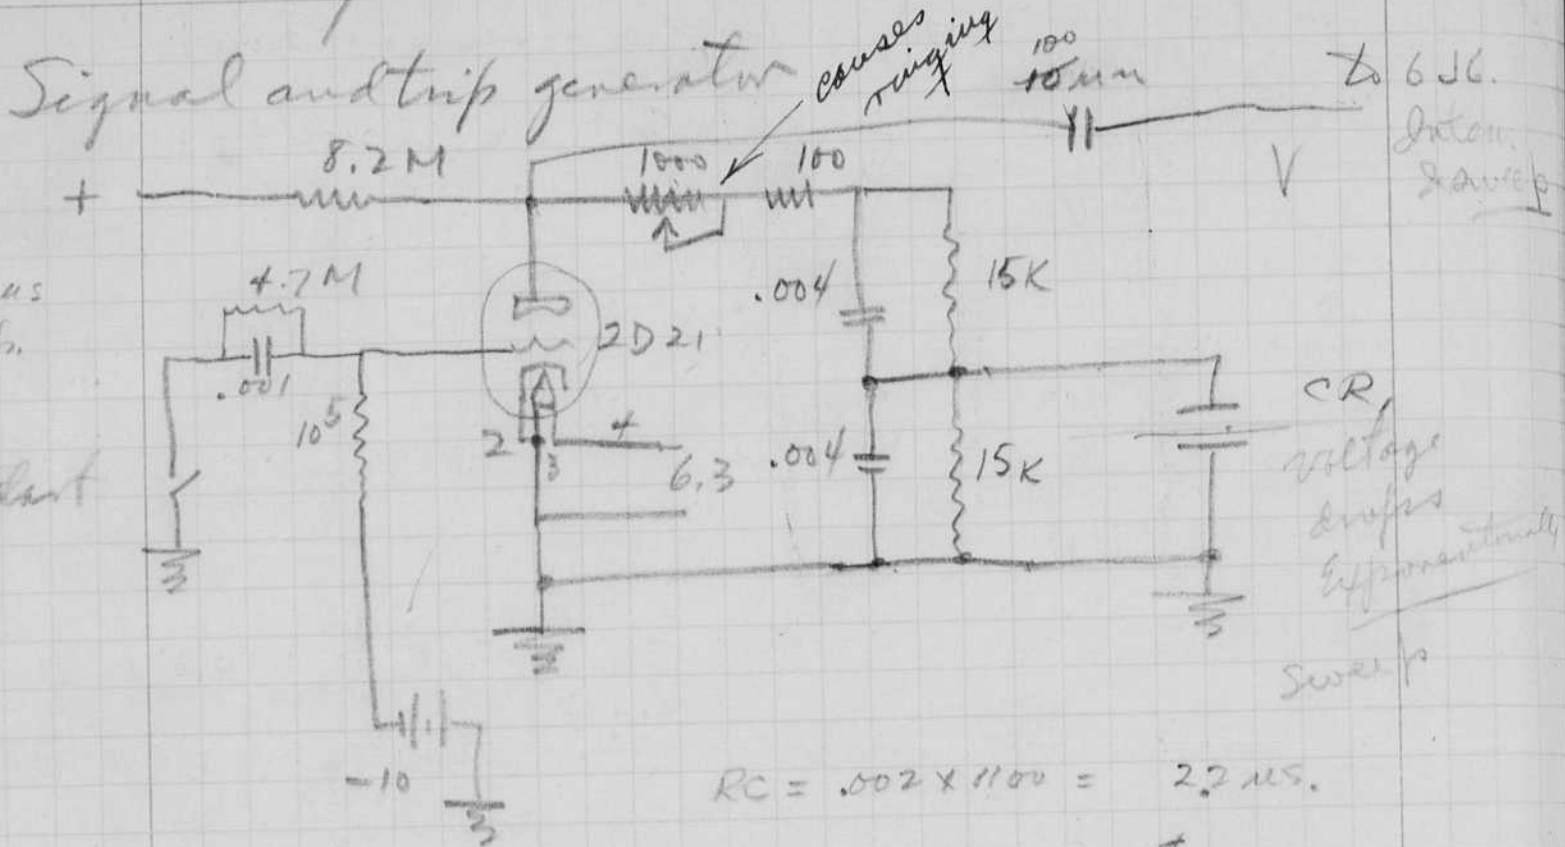 Signal and trip generator
causes
ringing
100
10 μμ
To 6J6.
Inten.
Sweep
8.2M
1000
100
V
+
4.7M
.001
μs
2D21
.004
15K
10⁵
2
3
4
6.3
.004
15K
CR,
voltage
drops
Exponentially
sweep
last
-10
RC = .002 x 1100 = 2.2 μs.